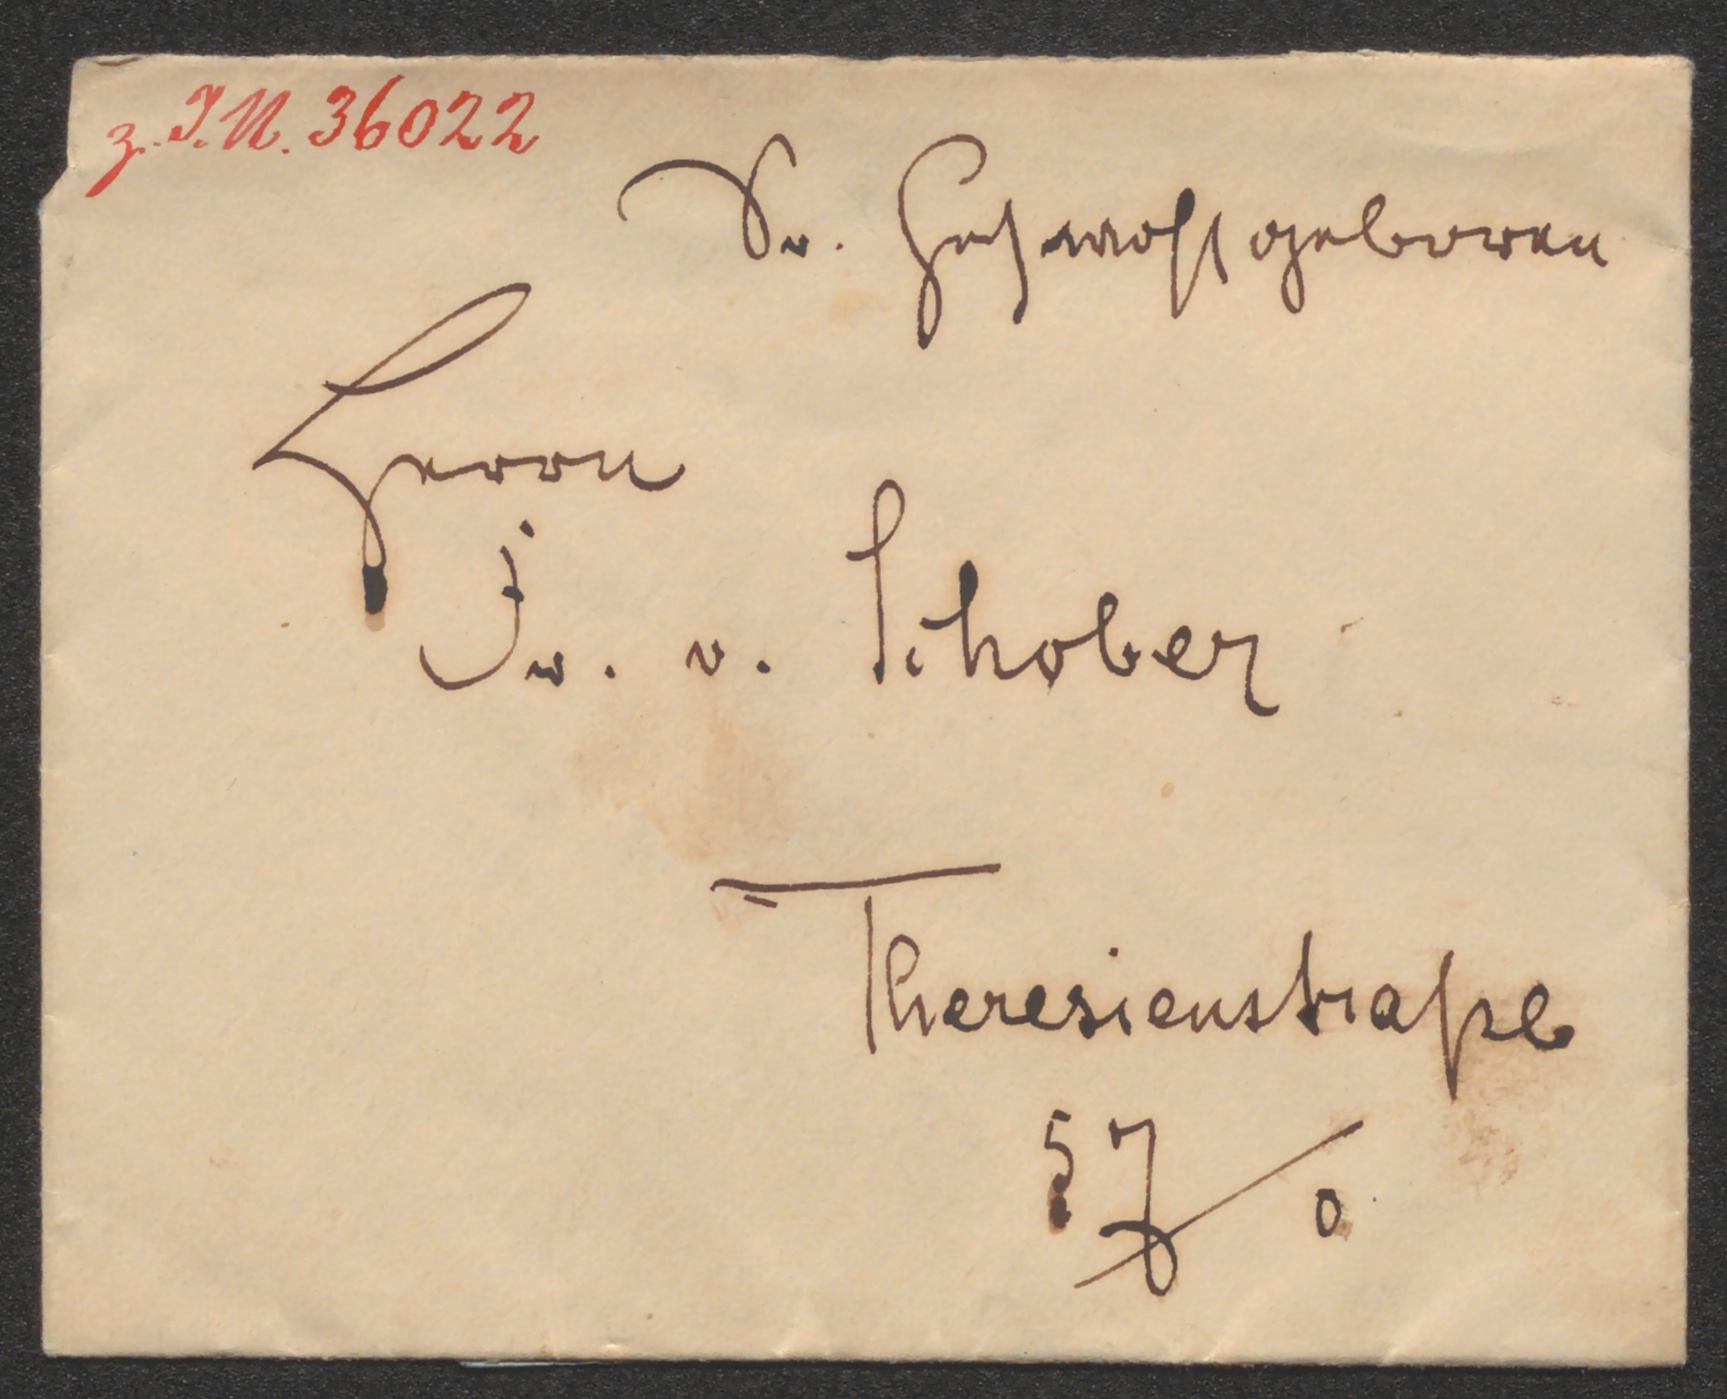 z. I.N. 36022
Sr. Hochwohlgeboren
Herrn
Fr. v. Schober
Theresienstraße
57/0